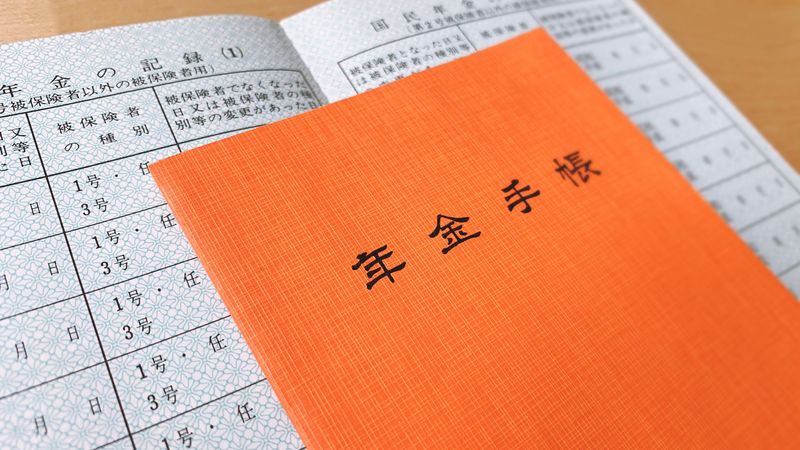 年金の記録(1)
号被保険者以外の被保険者用)
日又
別等
と日
被保険者
の種別
被保険者でなくなった
日又は被保険者の種
別等の変更があった日
日
1号・任
3号
月 日
1号・任
3号
月 日
1号・任
3号
月 日
1号・任
3号
1号・任
国民年金
(第2号被保険者以外の被保険
被保険者となった日又
は被保険者の種別等
被保険者
年金手帳